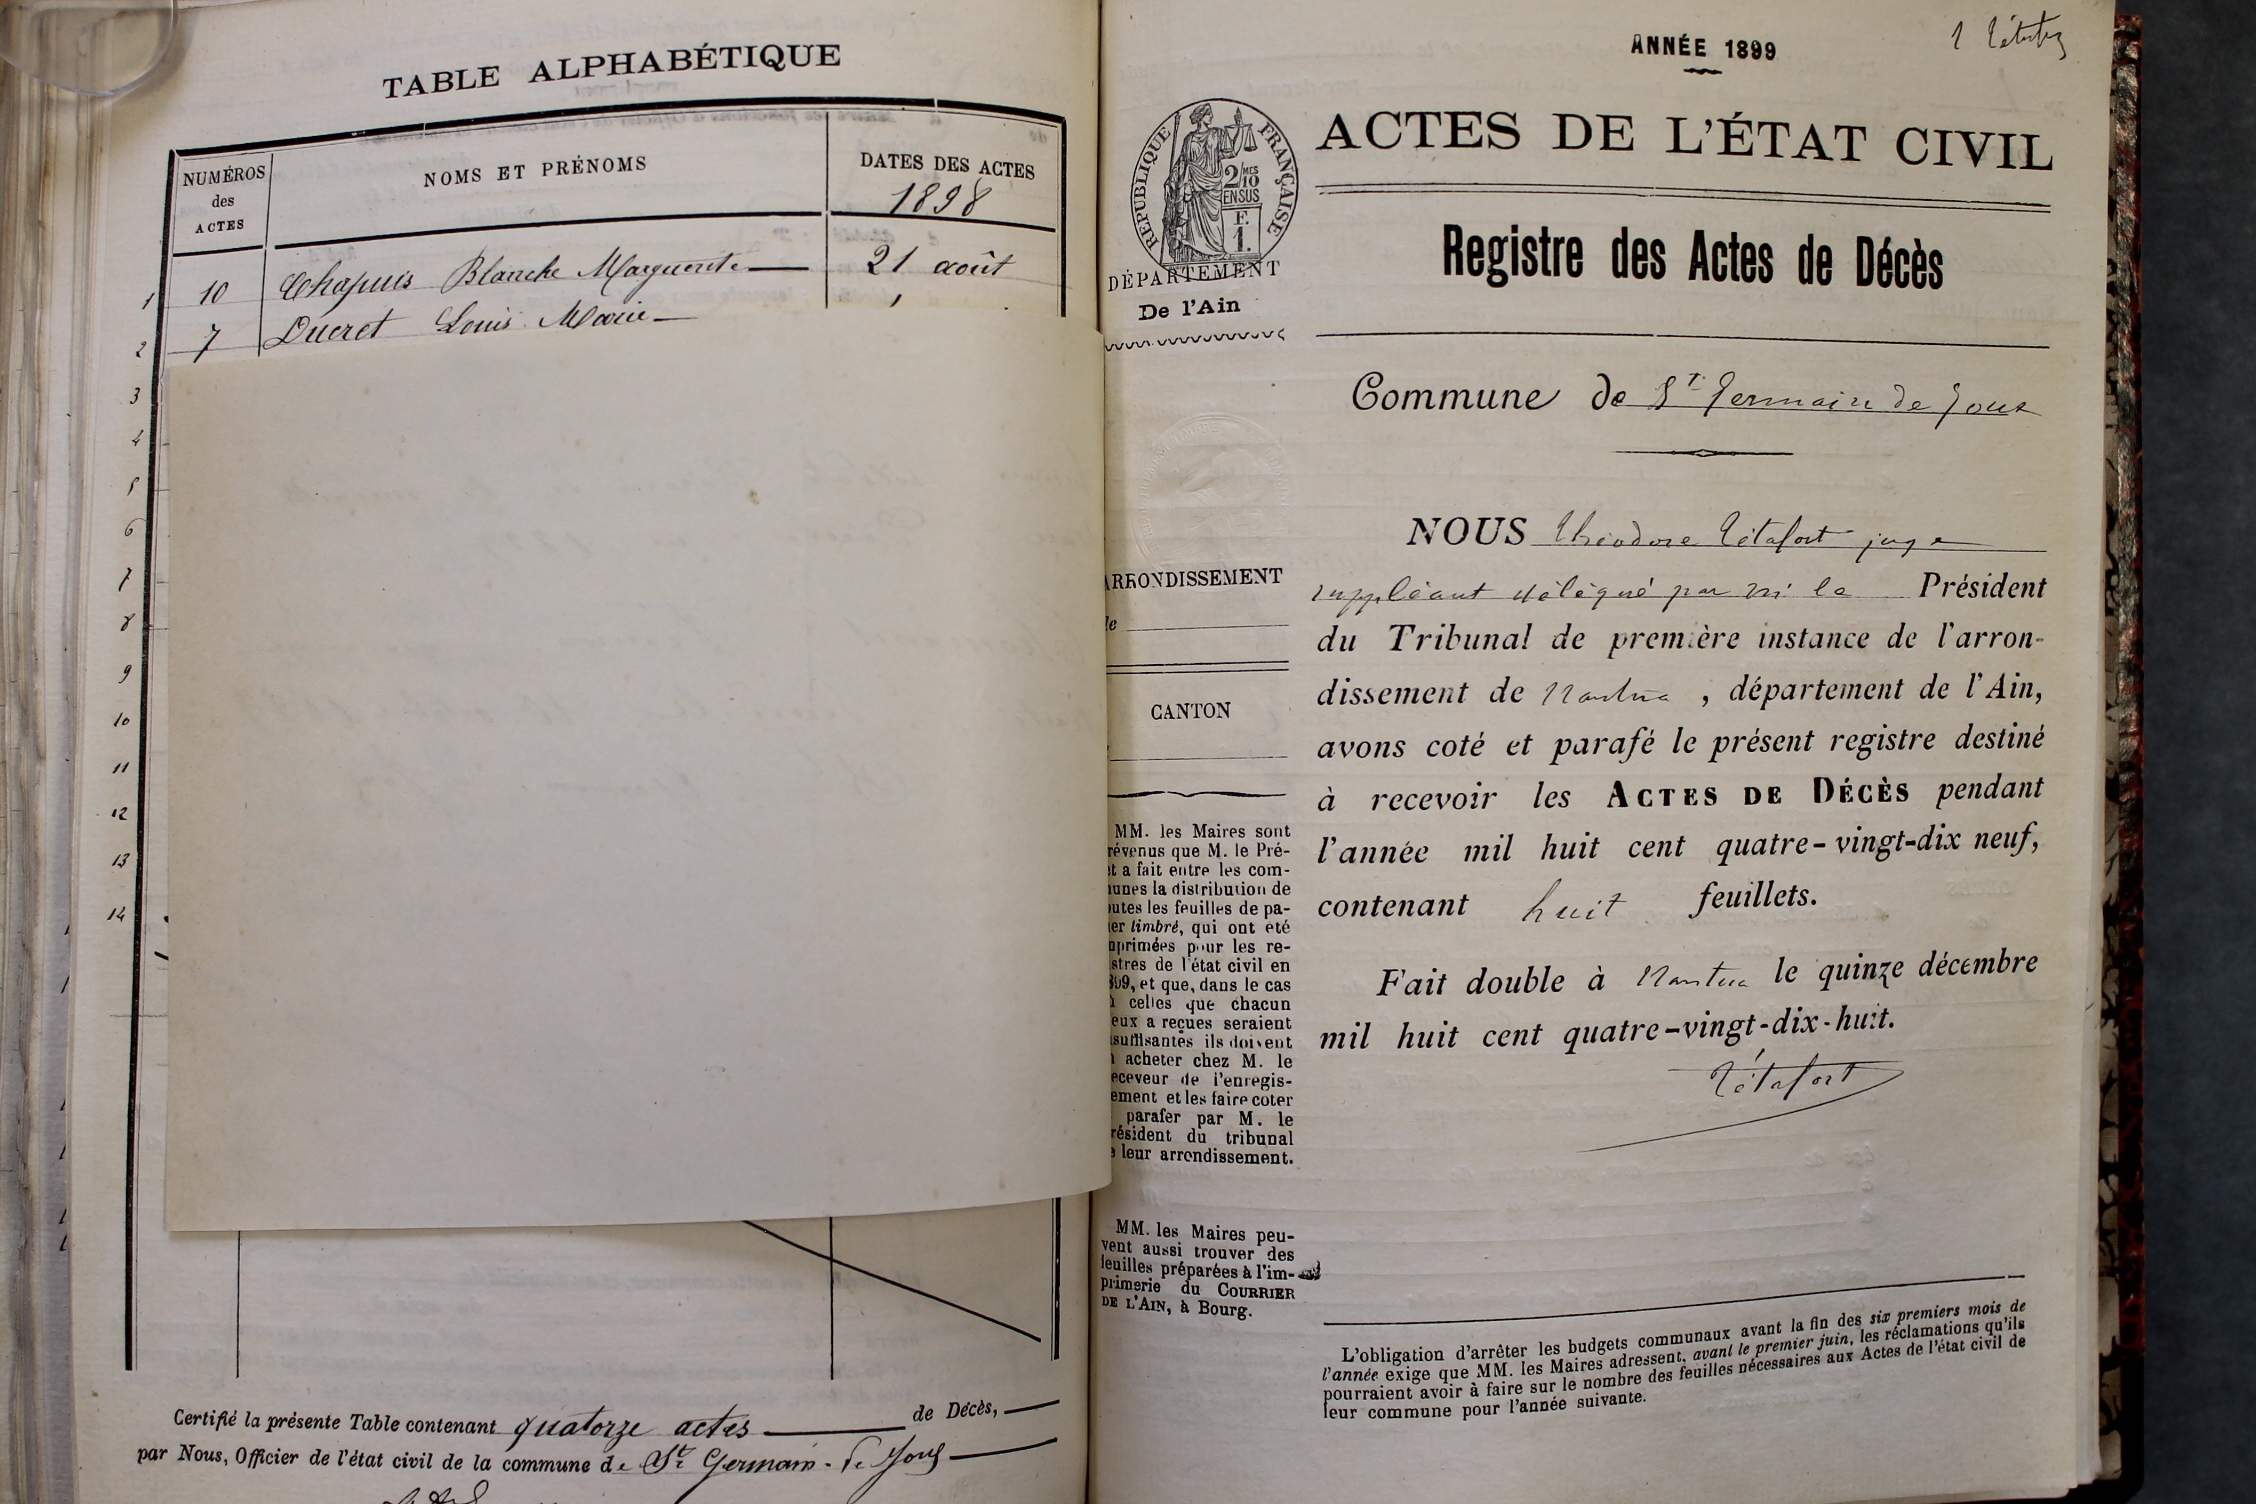 TABLE ALPHABÉTIQUE
NUMÉROS
des
ACTES
NOMS ET PRÉNOMS
DATES DES ACTES
1898
1 10 Chapuis Blanche Marguerite 21 août
2 7 Ducret Louis Marie
3
4
5
6
7
8
9
10
11
12
13
14
Certifié la présente Table contenant quatorze actes de Décès,
par Nous, Officier de l'état civil de la commune de St Germain-de Joux
ANNÉE 1899
RÉPUBLIQUE FRANÇAISE
2/10 MES
EN SUS
F.
1.
DÉPARTEMENT
De l'Ain
ARRONDISSEMENT
de
CANTON
MM. les Maires sont
révenus que M. le Pré-
et a fait entre les com-
unes la distribution de
utes les feuilles de pa-
er timbré, qui ont été
primées pour les re-
stres de l'état civil en
899, et que, dans le cas
celles que chacun
eux a reçues seraient
suffisantes ils doivent
acheter chez M. le
eceveur de l'enregis-
ement et les faire coter
parafer par M. le
résident du tribunal
leur arrondissement.
MM. les Maires peu-
vent aussi trouver des
feuilles préparées à l'im-
primerie du COURRIER
DE L'AIN, à Bourg.
ACTES DE L'ÉTAT CIVIL
Registre des Actes de Décès
Commune de St Germain de Joux
NOUS Théodore Tétafort juge
suppléant délégué par M. le Président
du Tribunal de première instance de l'arron-
dissement de Nantua, département de l'Ain,
avons coté et parafé le présent registre destiné
à recevoir les ACTES DE DÉCÈS pendant
l'année mil huit cent quatre-vingt-dix neuf,
contenant huit feuillets.
Fait double à Nantua le quinze décembre
mil huit cent quatre-vingt-dix-huit.
Tétafort
L'obligation d'arrêter les budgets communaux avant la fin des six premiers mois de
l'année exige que MM. les Maires adressent, avant le premier juin, les réclamations qu'ils
pourraient avoir à faire sur le nombre des feuilles nécessaires aux Actes de l'état civil de
leur commune pour l'année suivante.